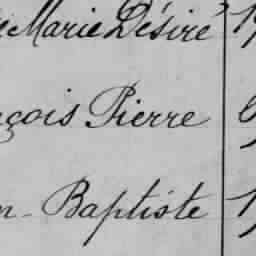 Marie Désiré
çois Pierre
n-Baptiste